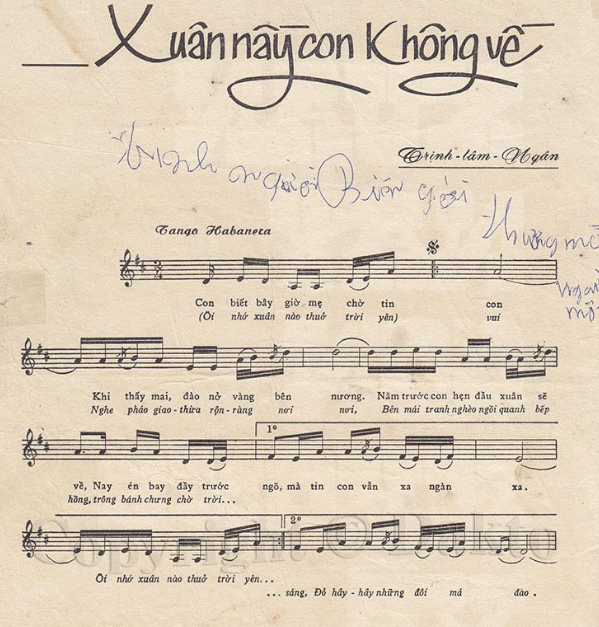 Xuân nầy con Không về
Trịnh-lâm-Ngân
người Biên giới
Tango Habanera
Con biết bây giờ mẹ chờ tin con
(Ôi nhớ xuân nào thuở trời yên) vui
Khi thấy mai, đào nở vàng bên nương. Năm trước con hẹn đầu xuân sẽ
Nghe pháo giao-thừa rộn-ràng nơi nơi, Bên mái tranh nghèo ngồi quanh bếp
1º
về, Nay én bay đầy trước ngõ, mà tin con vẫn xa ngàn xa.
hồng, trông bánh chưng chờ trời...
2º
Copyright © Dokto
Ôi nhớ xuân nào thuở trời yên...
... sáng, Đỏ hây-hây những đôi má đào.